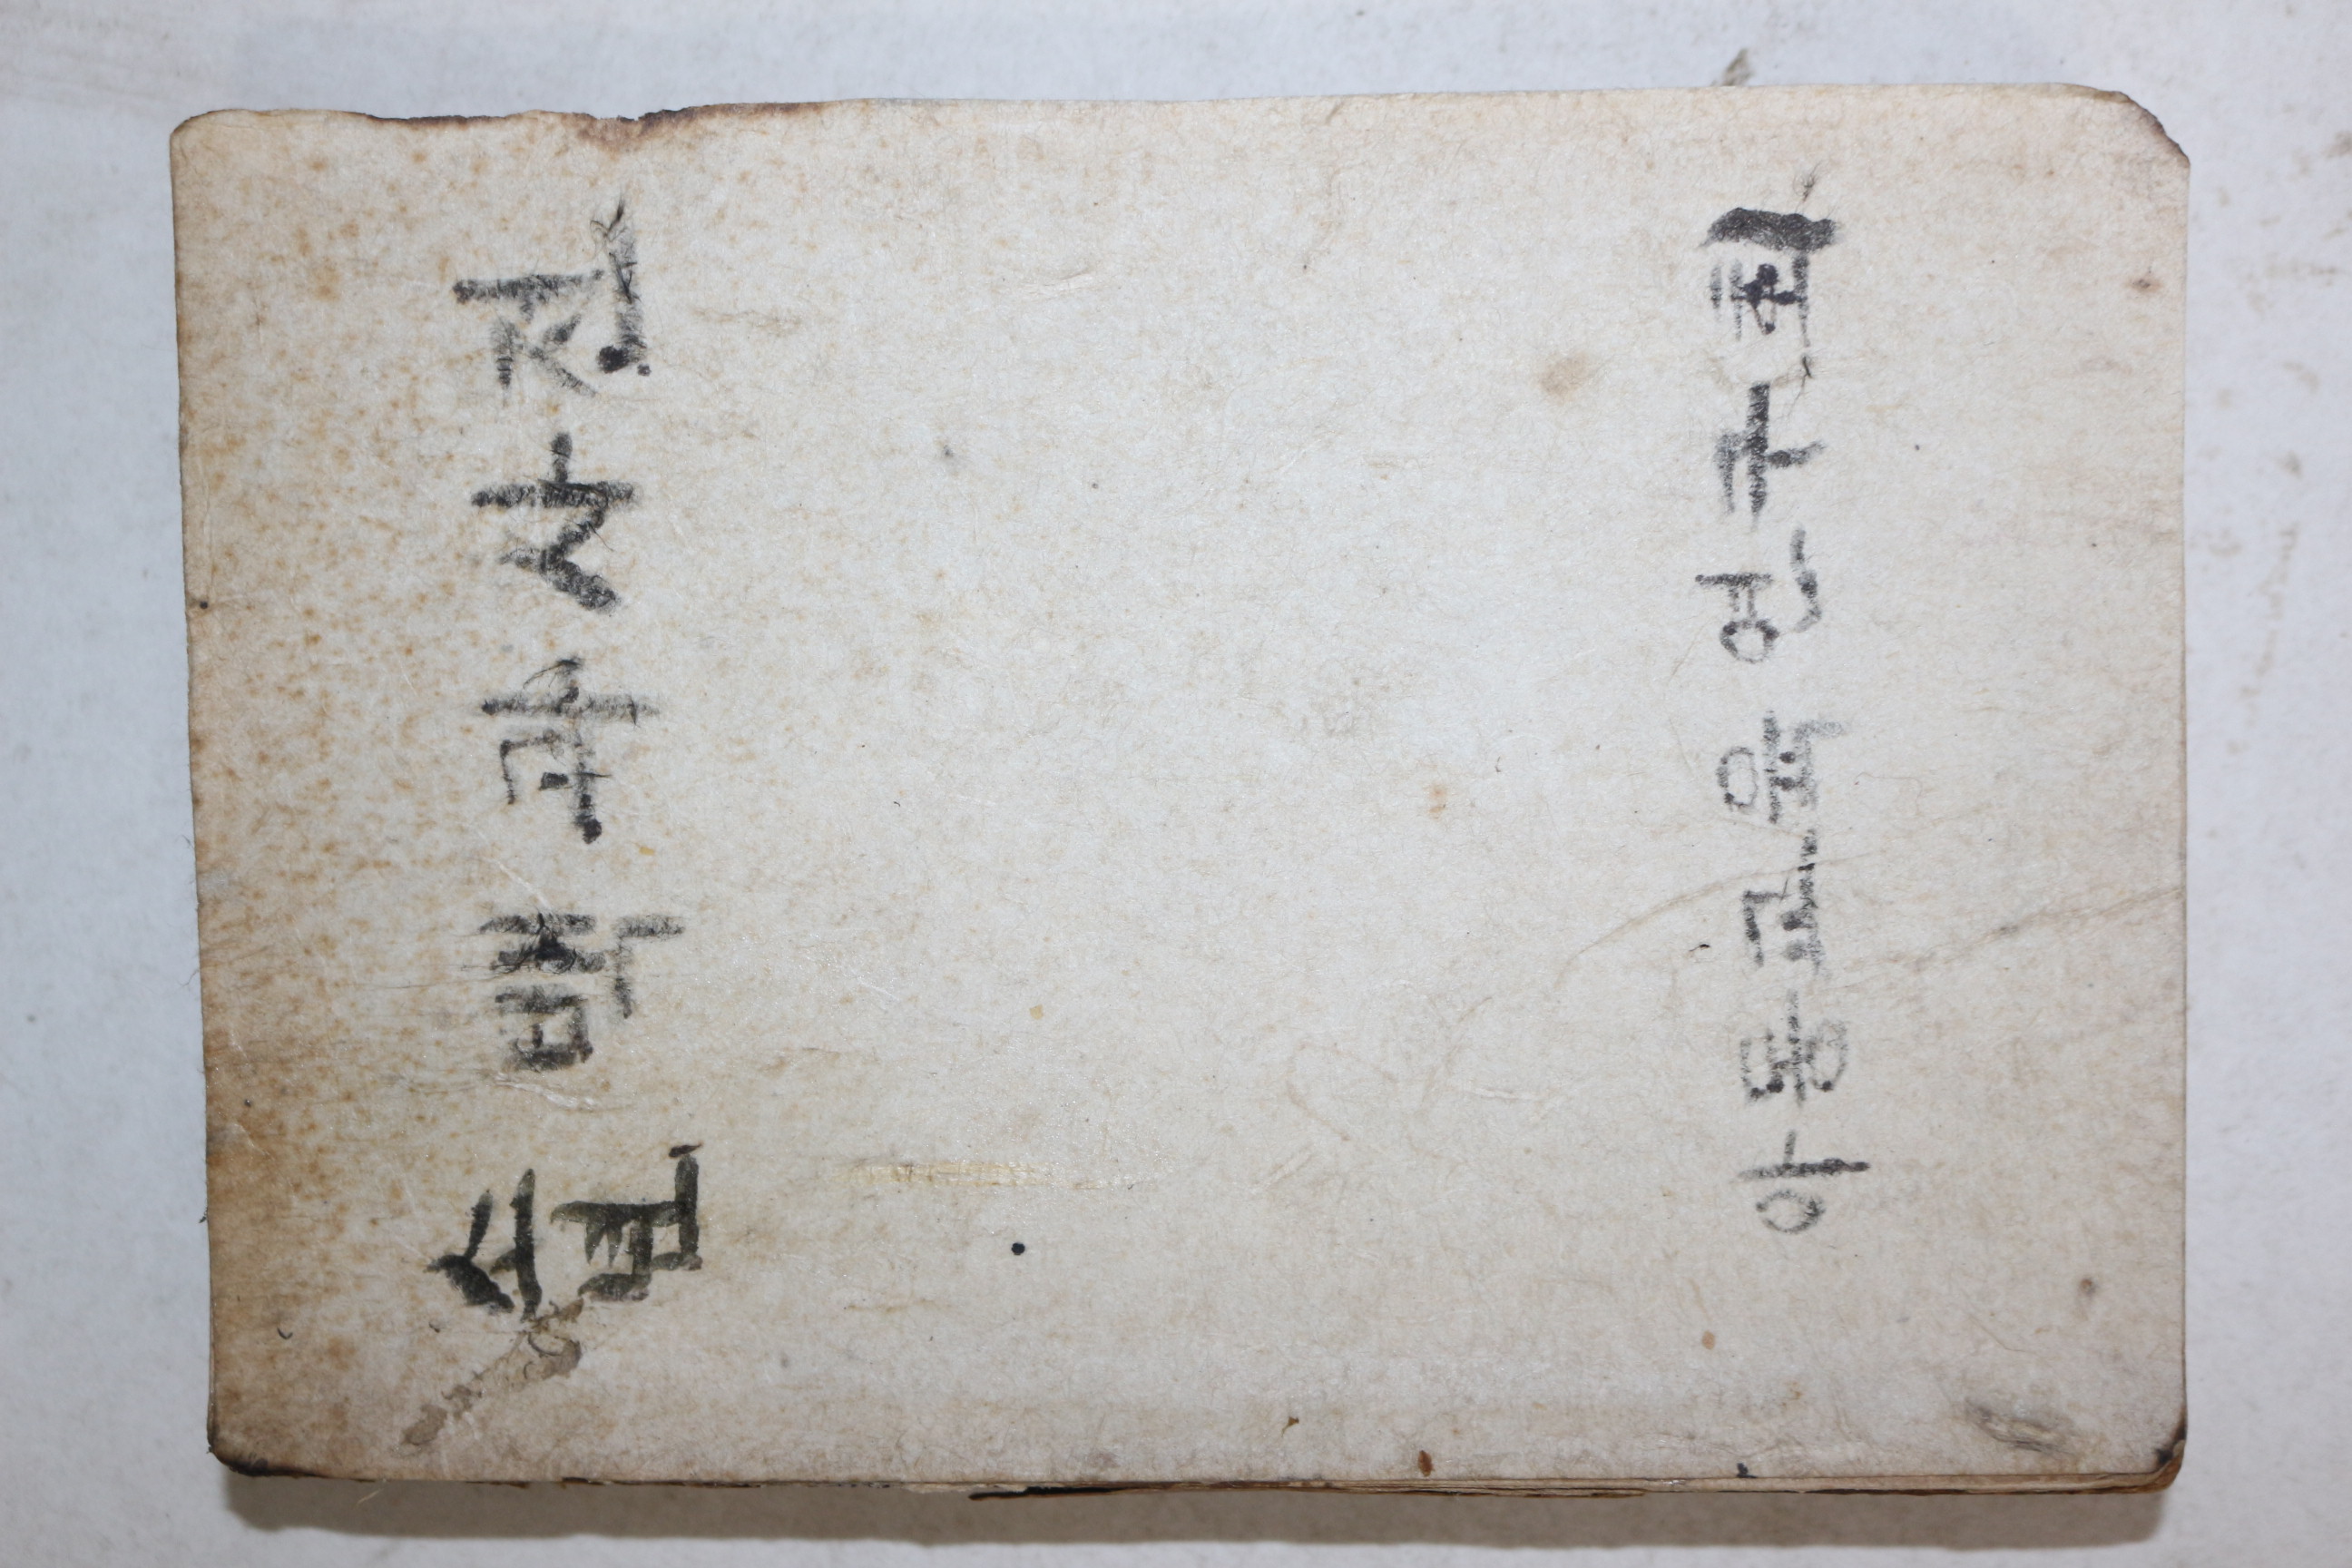 백과사전
아동교육연구회